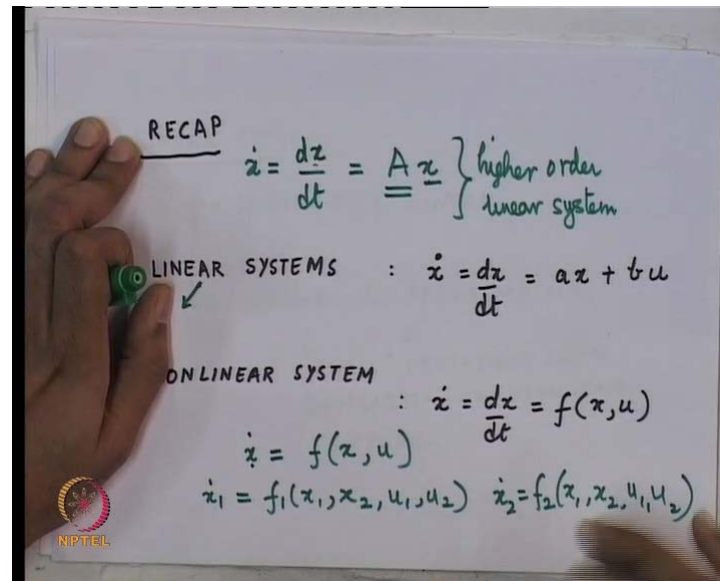 RECAP
ẋ = dx/dt = A x } higher order
linear system
LINEAR SYSTEMS : ẋ = dx/dt = ax + bu
ONLINEAR SYSTEM
: ẋ = dx/dt = f(x,u)
ẋ = f(x,u)
ẋ₁ = f₁(x₁,x₂,u₁,u₂) ẋ₂=f₂(x₁,x₂,u₁,u₂)
NPTEL